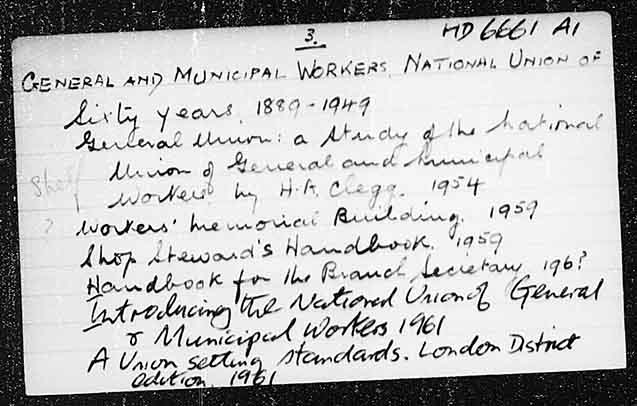 3. HD 6661 A1
GENERAL AND MUNICIPAL WORKERS, NATIONAL UNION OF
Sixty years, 1889-1949
General Union: a study of the National
Union of General and Municipal
Shelf Workers by H.A. Clegg. 1954
? Workers' Memorial Building. 1959
Shop Steward's Handbook. 1959
Handbook for the Branch Secretary 196?
Introducing the National Union of General
& Municipal Workers 1961
A Union setting standards. London District
edition. 1961